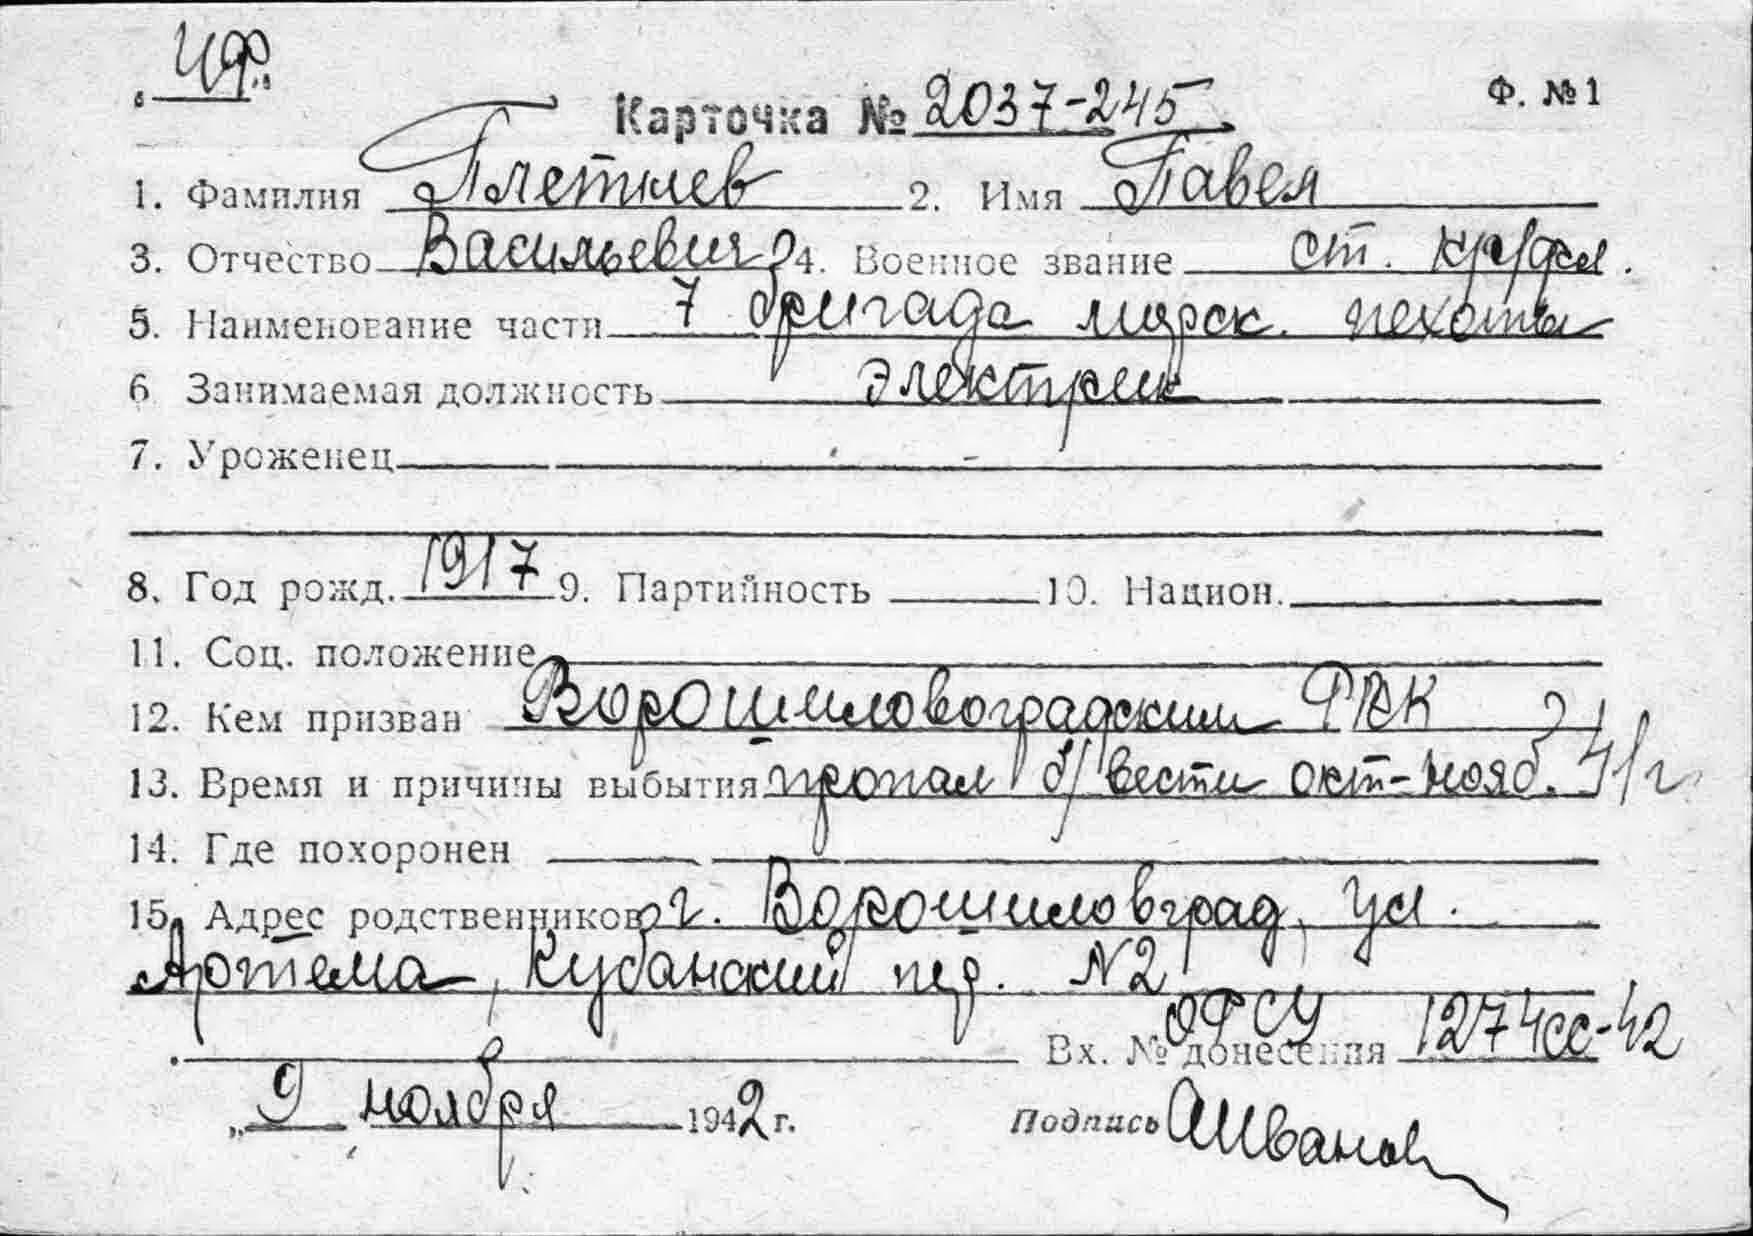 "ЧФ"
Карточка № 2037-245 Ф. №1
1. Фамилия Плетнев 2. Имя Павел
3. Отчество Васильевич 4. Военное звание ст. кр/фл.
5. Наименование части 7 бригада морск. пехоты
6 Занимаемая должность электрик
7. Уроженец
8. Год рожд. 1917 9. Партийность 10. Национ.
11. Соц. положение
12. Кем призван Ворошиловоградским РВК
13. Время и причины выбытия пропал б/вести окт-нояб. 41г
14. Где похоронен
15. Адрес родственников г. Ворошиловград, ул.
Артема, Кубанский пер. №2
ОФСУ
Вх. № донесения 1274сс-42
„9 ноября 1942 г. Подпись АИванов